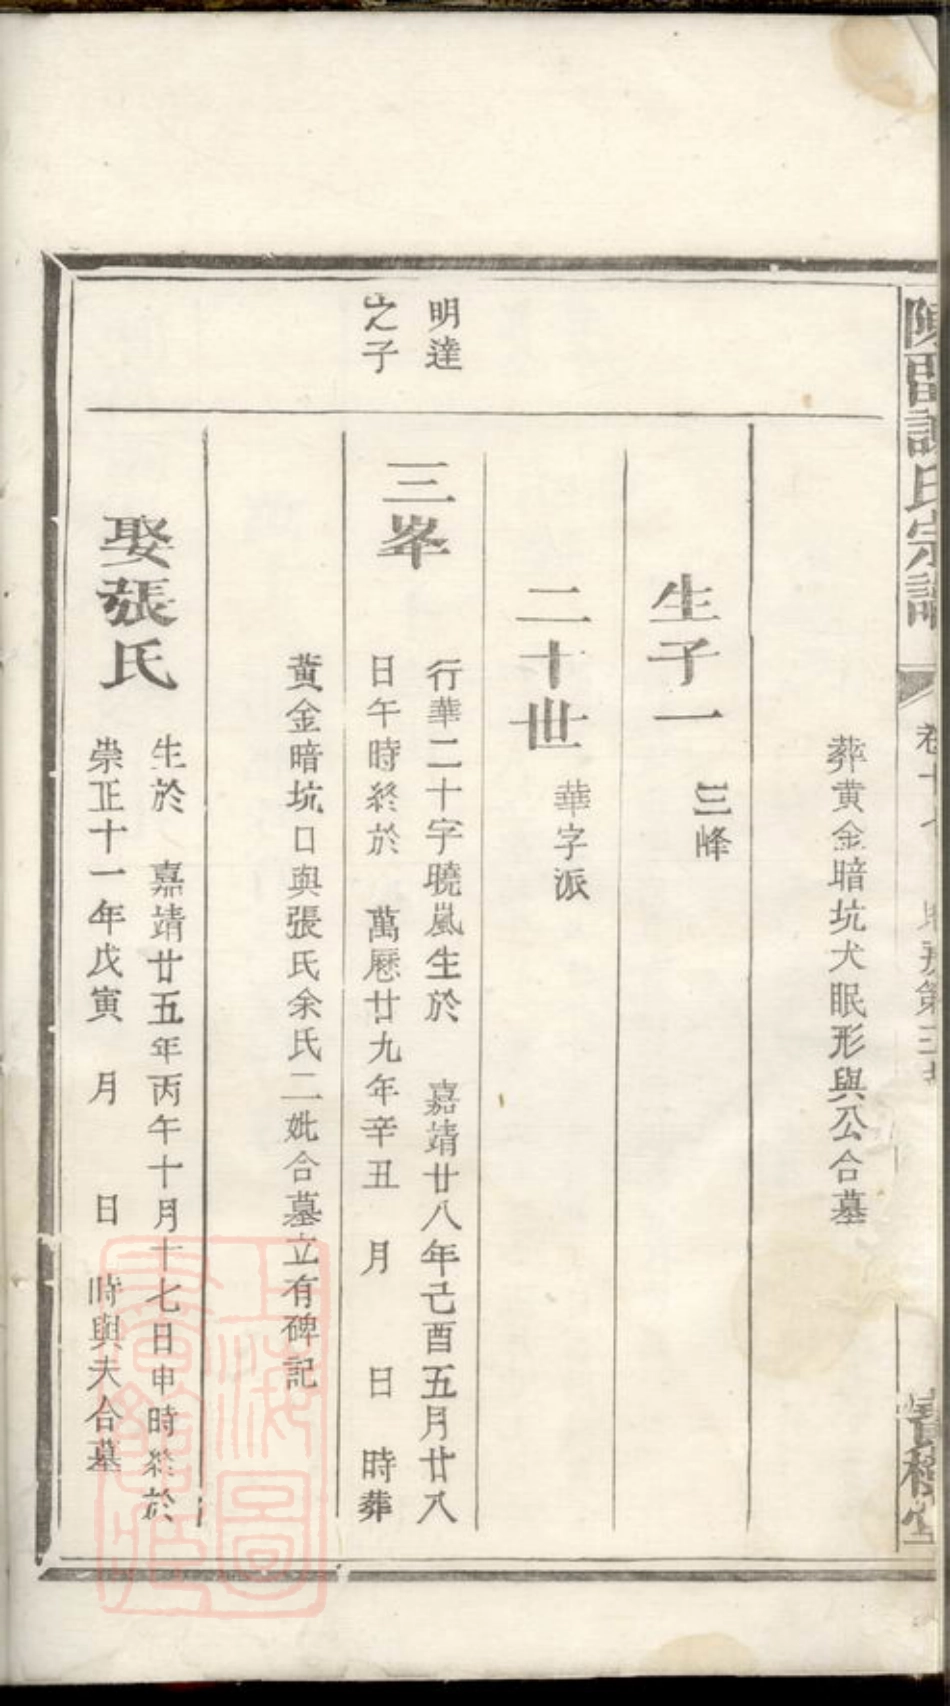 氏宗譜
葬黄金暗坑犬眠形與公合墓
生子一 三峰
二十世 華字派
明達
之子
三峯 行華二十字曉嵐生於 嘉靖廿八年己酉五月廿八
日午時終於 萬厯廿九年辛丑 月 日 時葬
黄金暗坑口與張氏余氏二妣合墓立有碑記
娶張氏 生於 嘉靖廿五年丙午十月十七日申時終於
崇正十一年戊寅 月 日 時與夫合墓
上海圖
書館藏